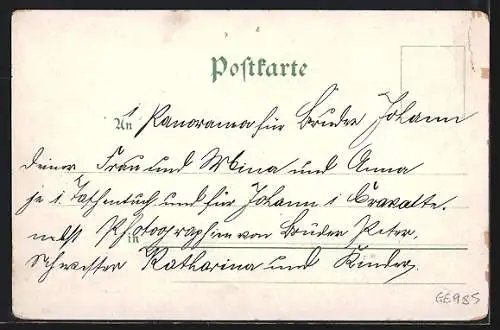 Postkarte
An 1 Panorama für Bruder Johann
deiner Frau und Mina und Anna
je 1 Taschentuch und für Johann 1 Cravatte.
nebst Photographien von Bruder Peter,
in
Schwester Katharina und Kinder,
GE985